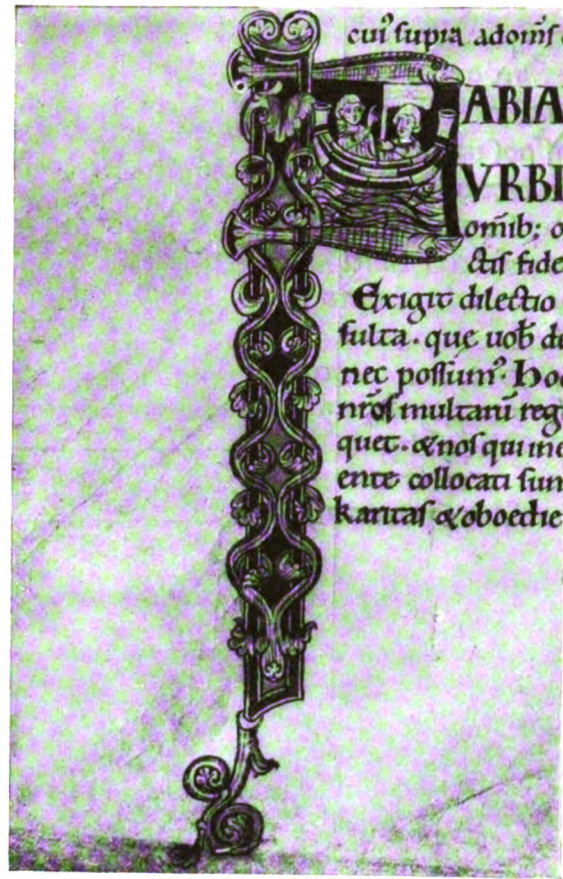 cuiꝰ supra adom̄s
FABIA
VRBI
om̄ib; o
ctis fide
Exigit dilectio
fulta. que uob̄ de
nec possumꝰ. hoc
nr̄os multarū reg
quet. & nos qui in
ente collocati sun
karitas & oboedie